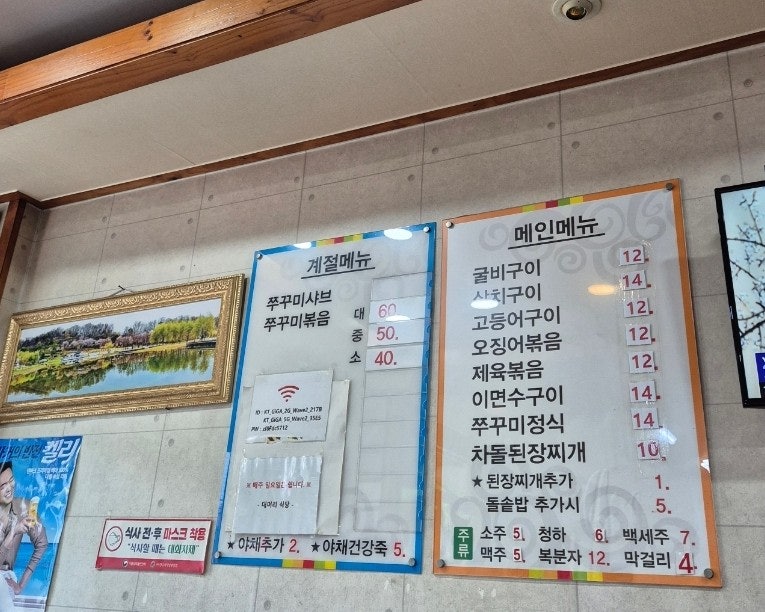 계절메뉴
쭈꾸미샤브
쭈꾸미볶음
대 60.
중 50.
소 40.
ID : KT_GiGA_2G_Wave2_217B
KT_GiGA_5G_Wave2_
PIN :
※ 매주 일요일은 휴무입니다. ※
- 대머리 식당 -
★ 야채추가 2. ★ 야채건강죽 5.
메인메뉴
굴비구이 12.
삼치구이 14.
고등어구이 12.
오징어볶음 12.
제육볶음 12.
이면수구이 14.
쭈꾸미정식 14.
차돌된장찌개 10.
★ 된장찌개추가 1.
돌솥밥 추가시 5.
주류
소주 5. 청하 6. 백세주 7.
맥주 5. 복분자 12. 막걸리 4.
켈리
식사 전·후 마스크 착용
"식사할 때는 대화자제"